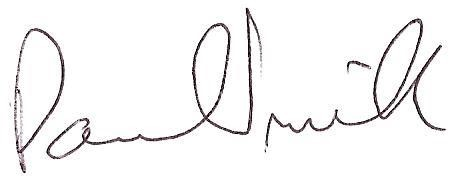 Paul Smith